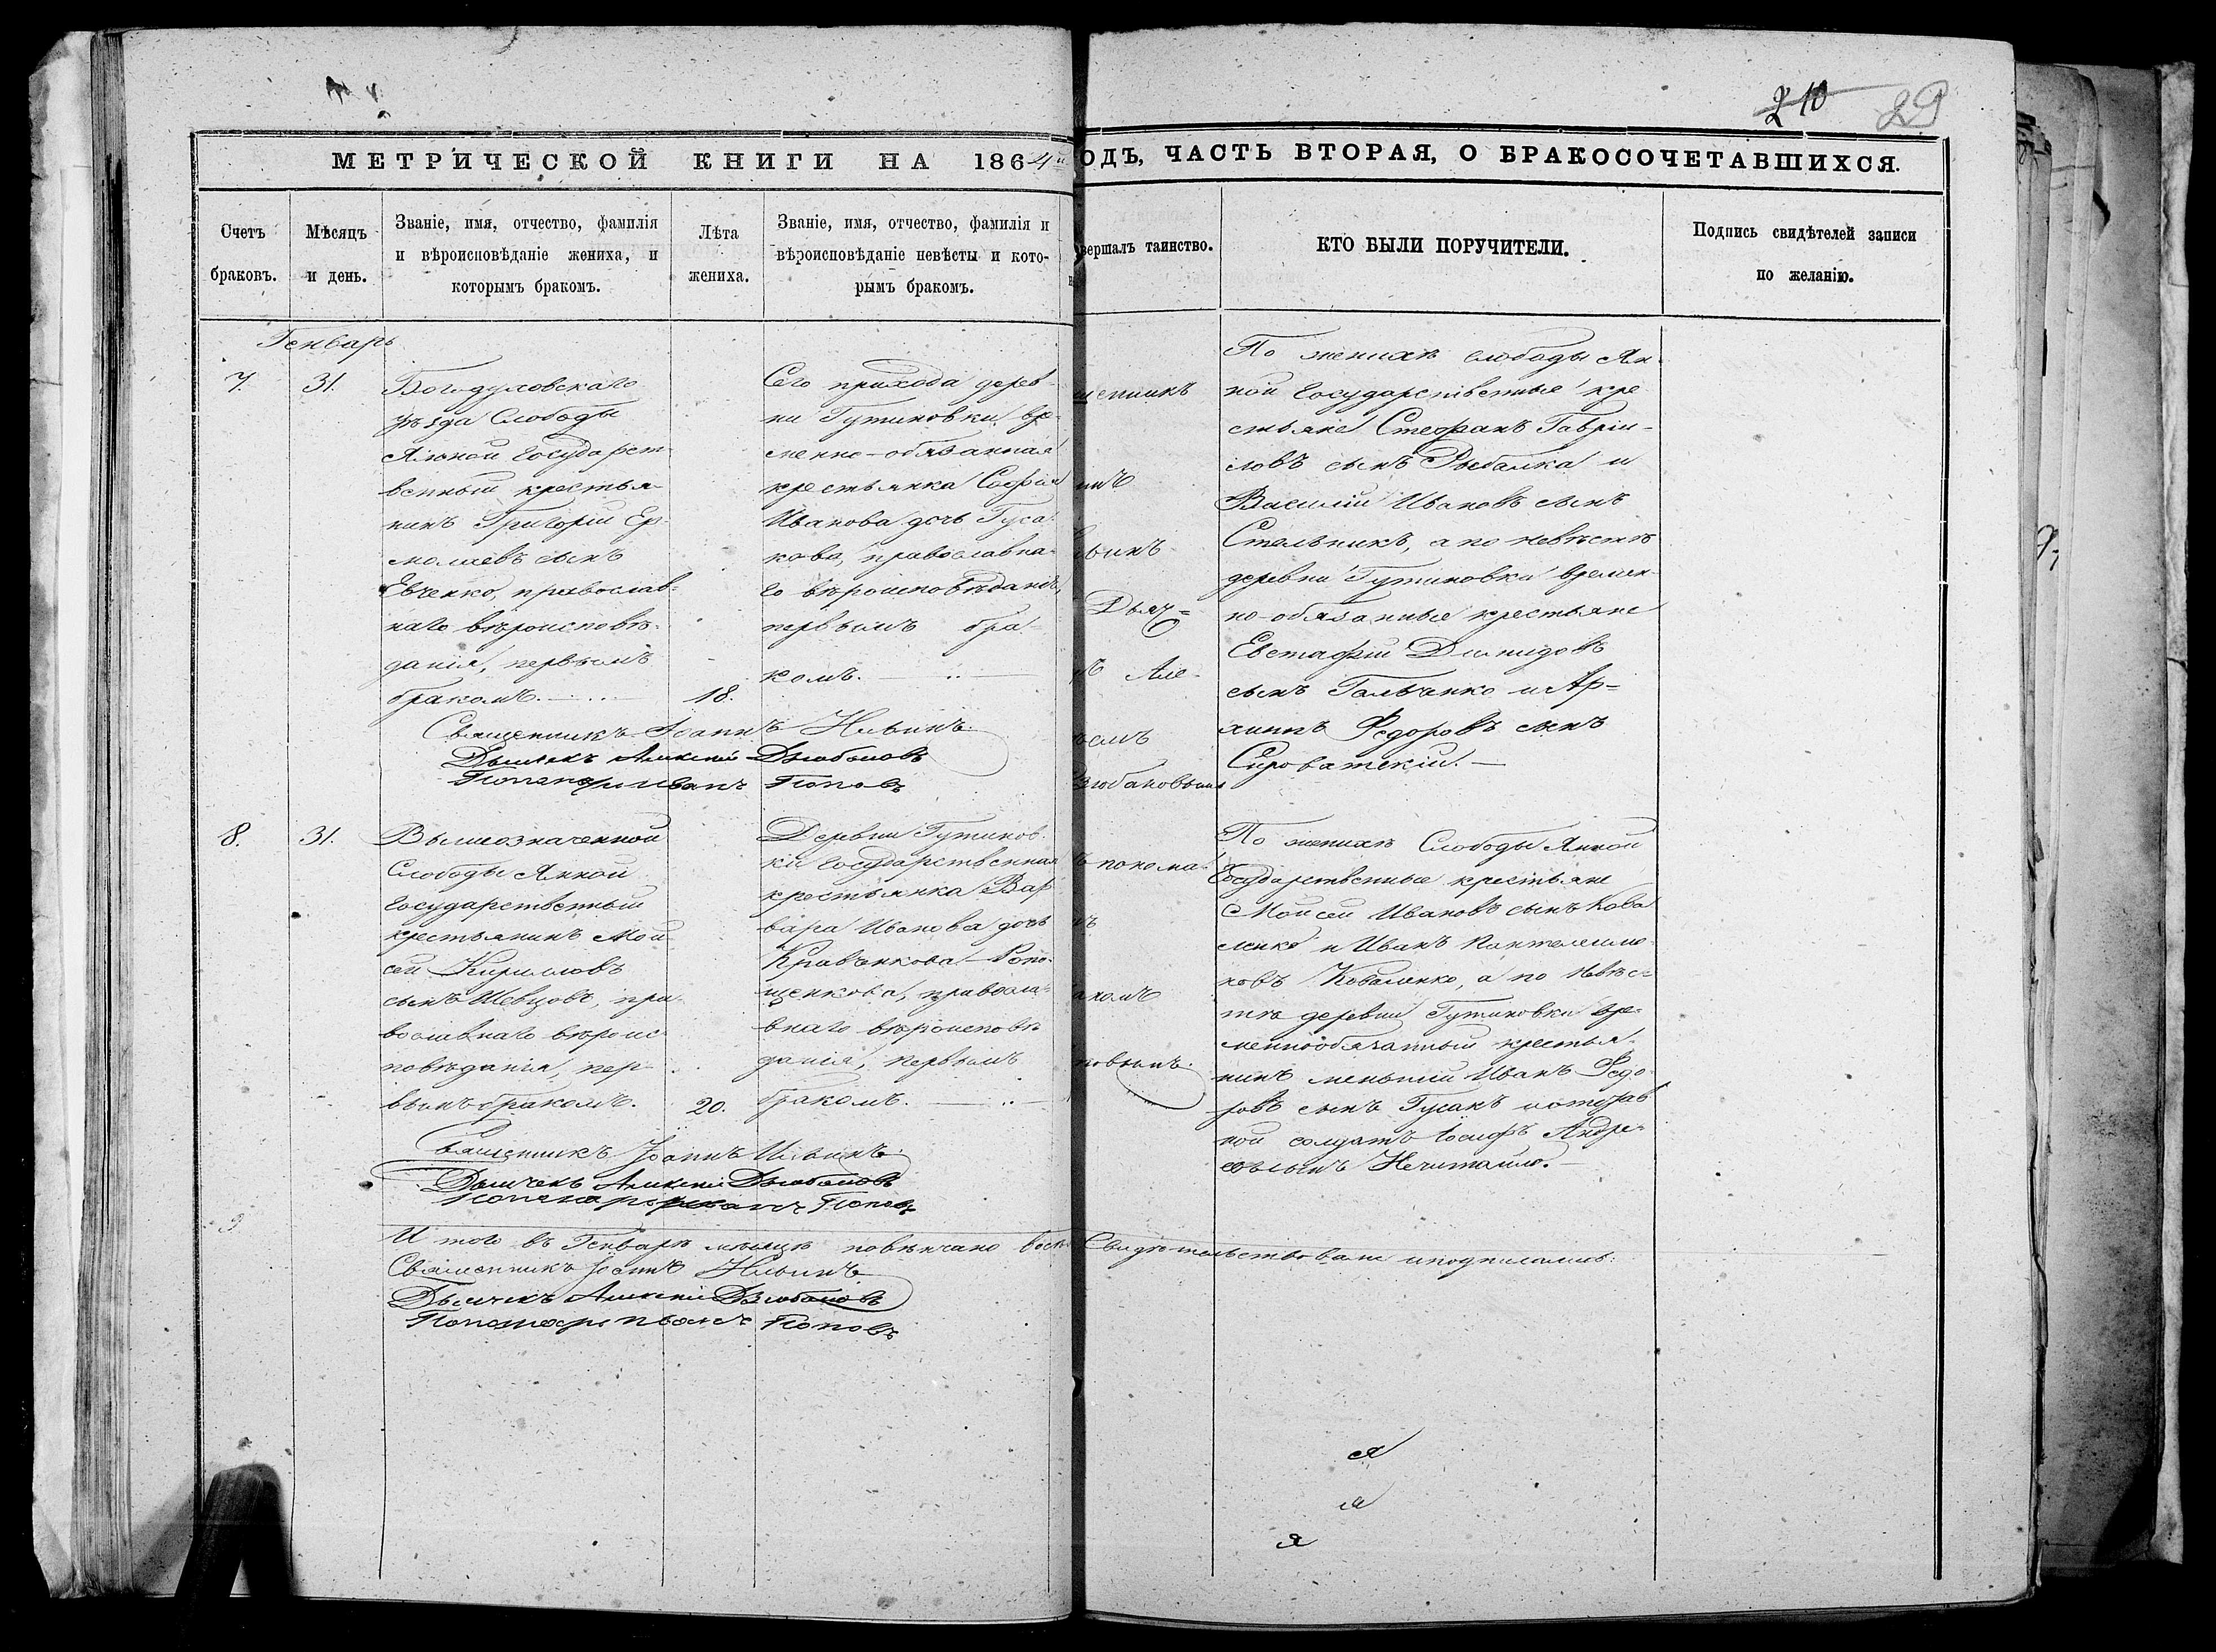 210
29
МЕТРИЧЕСКОЙ КНИГИ НА 1864й
ОДЪ, ЧАСТЬ ВТОРАЯ, О БРАКОСОЧЕТАВШИХСЯ.
Счетъ
браковъ.
Мѣсяцъ
и день.
Званіе, имя, отчество, фамилія
и вѣроисповѣданіе жениха, и
которымъ бракомъ.
Лѣта
жениха.
Званіе, имя, отчество, фамилія и
вѣроисповѣданіе невѣсты и кото-
рымъ бракомъ.
вершалъ таинство.
КТО БЫЛИ ПОРУЧИТЕЛИ.
Подпись свидѣтелей записи
по желанію.
Генварь
7.
31.
Богодуховскаго
уѣзда Слободы
Ямной Государст-
венный крестья-
нинъ Григорій Ер-
молаевъ сынъ
Евченко, православ-
наго вѣроисповѣ-
данія, первымъ
бракомъ.
18.
Сего прихода дерев-
ни Гутиновки вре-
менно-обязанная
крестьянка Софія
Иванова дочь Гуса-
кова, православна-
го вѣроисповѣданія,
первымъ бра-
комъ.
щенникъ
инъ
ьинъ
Дьяч=
ъ Але-
ѣемъ
зюбановымъ
По женихѣ слободы Ям-
ной Государственные кре
стьяне Стефанъ Гаврі-
ловъ сынъ Рыбалка и
Василій Ивановъ сынъ
Стельникъ, а по невѣстѣ
деревни Гутиновки времен-
но-обязанные крестьяне
Евстафій Демидовъ
сынъ Гальченко и Ар-
хиппъ Ѳедоровъ сынъ
Сыроватскій.
Священникъ Іоаннъ Ильинъ.
Дьячекъ Алексій Дзюбановъ
Пономарь Иванъ Поповъ
8.
31.
Вышеозначенной
Слободы Ямной
Государственный
крестьянинъ Мои-
сей Кирилловъ
сынъ Шевцовъ, пра-
вославнаго вѣроис-
повѣданія, пер-
вымъ бракомъ.
20.
Деревни Гутинов-
ки Государственная
крестьянка Вар
вара Иванова дочь
Кравченкова-Попо-
щенкова, правосла-
внаго вѣроисповѣ
данія, первымъ
бракомъ.
ъ понома-
нъ
акомъ
новымъ.
По женихѣ Слободы Ямной
Государственные крестьяне
Моисей Ивановъ сынъ Кова
ленко и Иванъ Пантелеимо-
новъ Коваленко, а по невѣс-
тѣ деревни Гутиновки вре-
меннообязанный крестья-
нинъ меньшій Иванъ Ѳедо-
ровъ сынъ Гусакъ и отстав
ной солдатъ Іосифъ Андре-
евъ сынъ Нечитайло.
Священникъ Іоаннъ Ильинъ.
Дьячекъ Алексій Дзюбановъ
Пономарь Иванъ Поповъ
И того въ Генварѣ мѣсяцѣ повѣнчано восем
Свидѣтельствовали и подписались:
Священникъ Іоаннъ Ильинъ
Дьячекъ Алексій Дзюбановъ
Пономарь Иванъ Поповъ